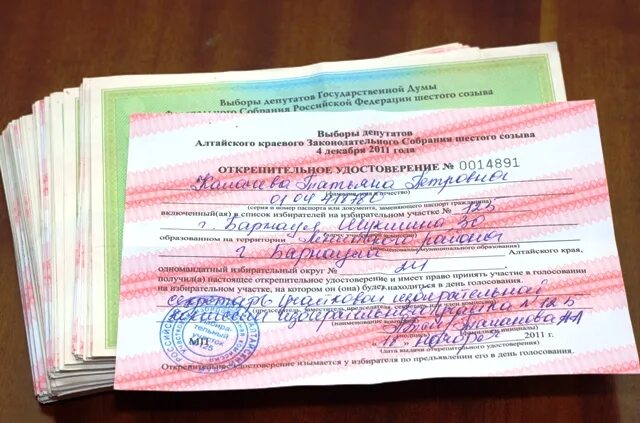 Выборы депутатов Государственной Думы
Федерального Собрания Российской Федерации шестого созыва
Выборы депутатов
Алтайского краевого Законодательного Собрания шестого созыва
4 декабря 2011 года
ОТКРЕПИТЕЛЬНОЕ УДОСТОВЕРЕНИЕ № 0014891
Татьяна Петровна
(фамилия, имя и отчество)
(серия и номер паспорта или документа, заменяющего паспорт гражданина)
включенный(ая) в список избирателей на избирательном участке № 125
г. Барнаул Шукшина
образованном на территории Ленинского района
г. Барнаула
Алтайского края,
одномандатный избирательный округ №
получил(а) настоящее открепительное удостоверение и имеет право принять участие в голосовании
на избирательном участке, на котором он (она) будет находиться в день голосования.
секретарь участковой избирательной
комиссии избирательного участка № 125
(наименование комиссии)
(фамилия, инициалы)
МП
11 ноября 2011 г.
(дата выдачи открепительного удостоверения)
Открепительное удостоверение изымается у избирателя по предъявлении его в день голосования.